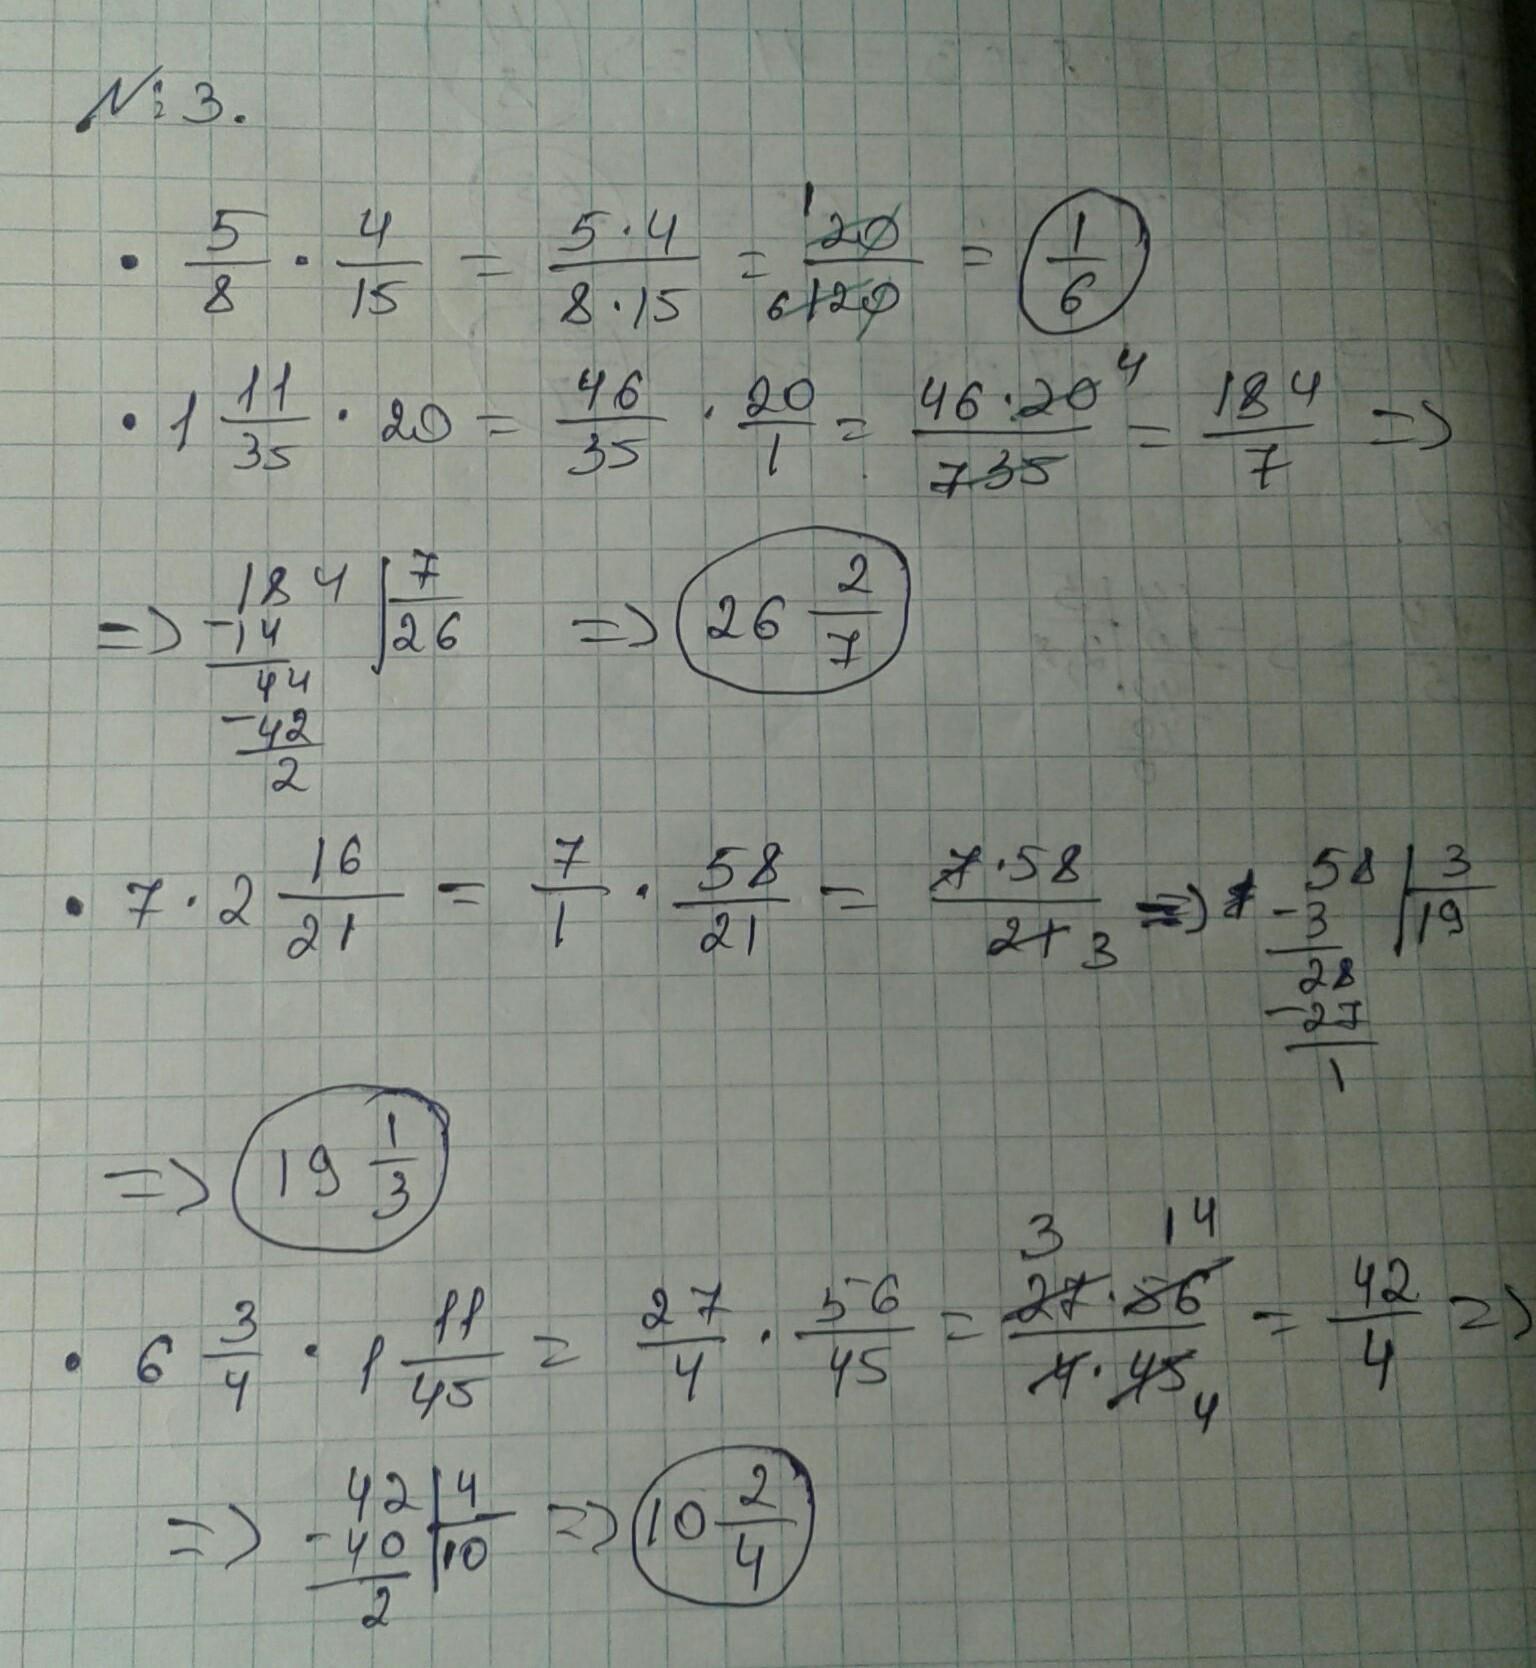 № 3.
• 5/8 · 4/15 = 5·4/8·15 = 1 20/6 120 = 1/6
• 1 11/35 · 20 = 46/35 · 20/1 = 46·20 4/7 35 = 184/7 =>
=> 184 | 7
-14 | 26
44
-42
2
=> 26 2/7
• 7 · 2 16/21 = 7/1 · 58/21 = 7·58/21 3 => 58 | 3
-3 | 19
28
-27
1
=> 19 1/3
• 6 3/4 · 1 11/45 = 27/4 · 56/45 = 3 14 27·56/4·45 4 = 42/4 =>
=> 42 | 4
-40 | 10
2
=> 10 2/4